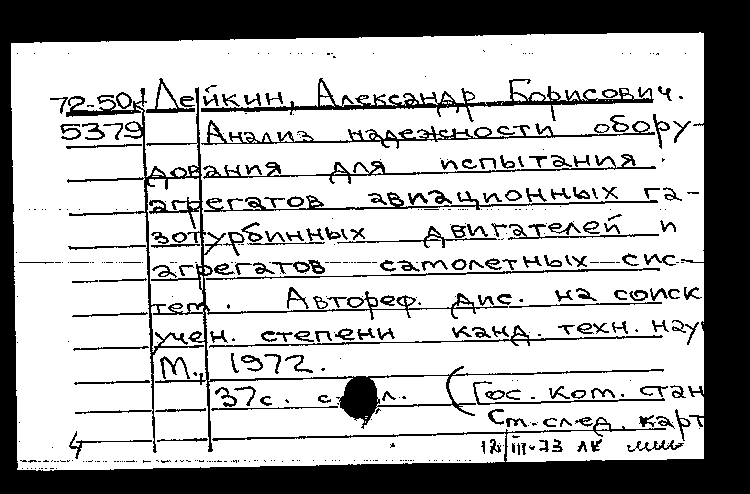 72-50к Лейкин, Александр Борисович.
5379 Анализ надежности обору-
дования для испытания
агрегатов авиационных га-
зотурбинных двигателей и
агрегатов самолетных сис-
тем. Автореф. дис. на соиск
учен. степени канд. техн. нау
М., 1972.
37с. с л. (Гос. ком. стан
См. след. карт
4 12/III-73 ЛК